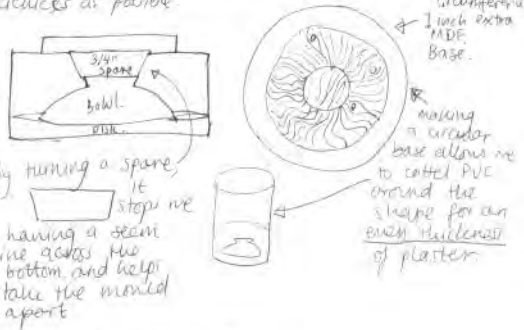 as
3/4"
spare
Bowl.
turning a spare,
it
stops me
having a seam
line across the
bottom, and helps
take the mould
apart
1 inch extra
MDF
Base.
making
a circular
base allows me
to cottel PVC
around the
shape for an
even thickness
of plaster.